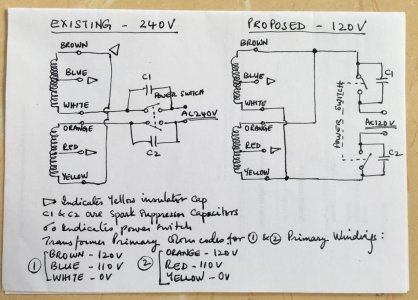 EXISTING - 240V
PROPOSED - 120V
BROWN
BLUE
WHITE
ORANGE
RED
YELLOW
C1
POWER SWITCH
AC 240V
C2
BROWN
BLUE
WHITE
ORANGE
RED
YELLOW
POWER SWITCH
C1
AC 120V
C2
Indicates Yellow insulator Cap
C1 & C2 are Spark Suppressor Capacitors
Indicates power switch
Transformer Primary codes for ① & ② Primary Windings:
① BROWN - 120V
BLUE - 110V
WHITE - 0V
② ORANGE - 120V
RED - 110V
YELLOW - 0V